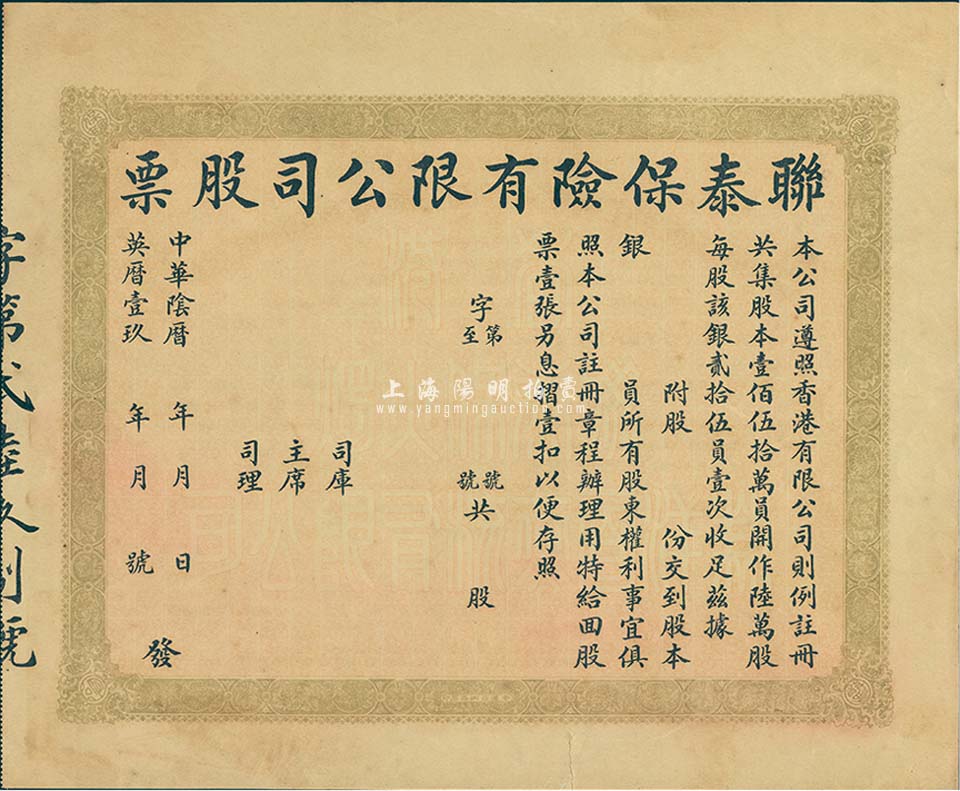 聯泰保險有限公司股票
本公司遵照香港有限公司則例註冊
共集股本壹佰伍拾萬員開作陸萬股
每股該銀貳拾伍員壹次收足茲據
附股 份交到股本
銀 員所有股東權利事宜俱
照本公司註冊章程辦理用特給回股
票壹張另息摺壹扣以便存照
字 第 號
至 號 共 股
司庫
主席
司理
中華陰曆 年 月 日
英曆壹玖 年 月 號 發
字第弍
號
上海陽明拍賣
www.yangmingauction.com